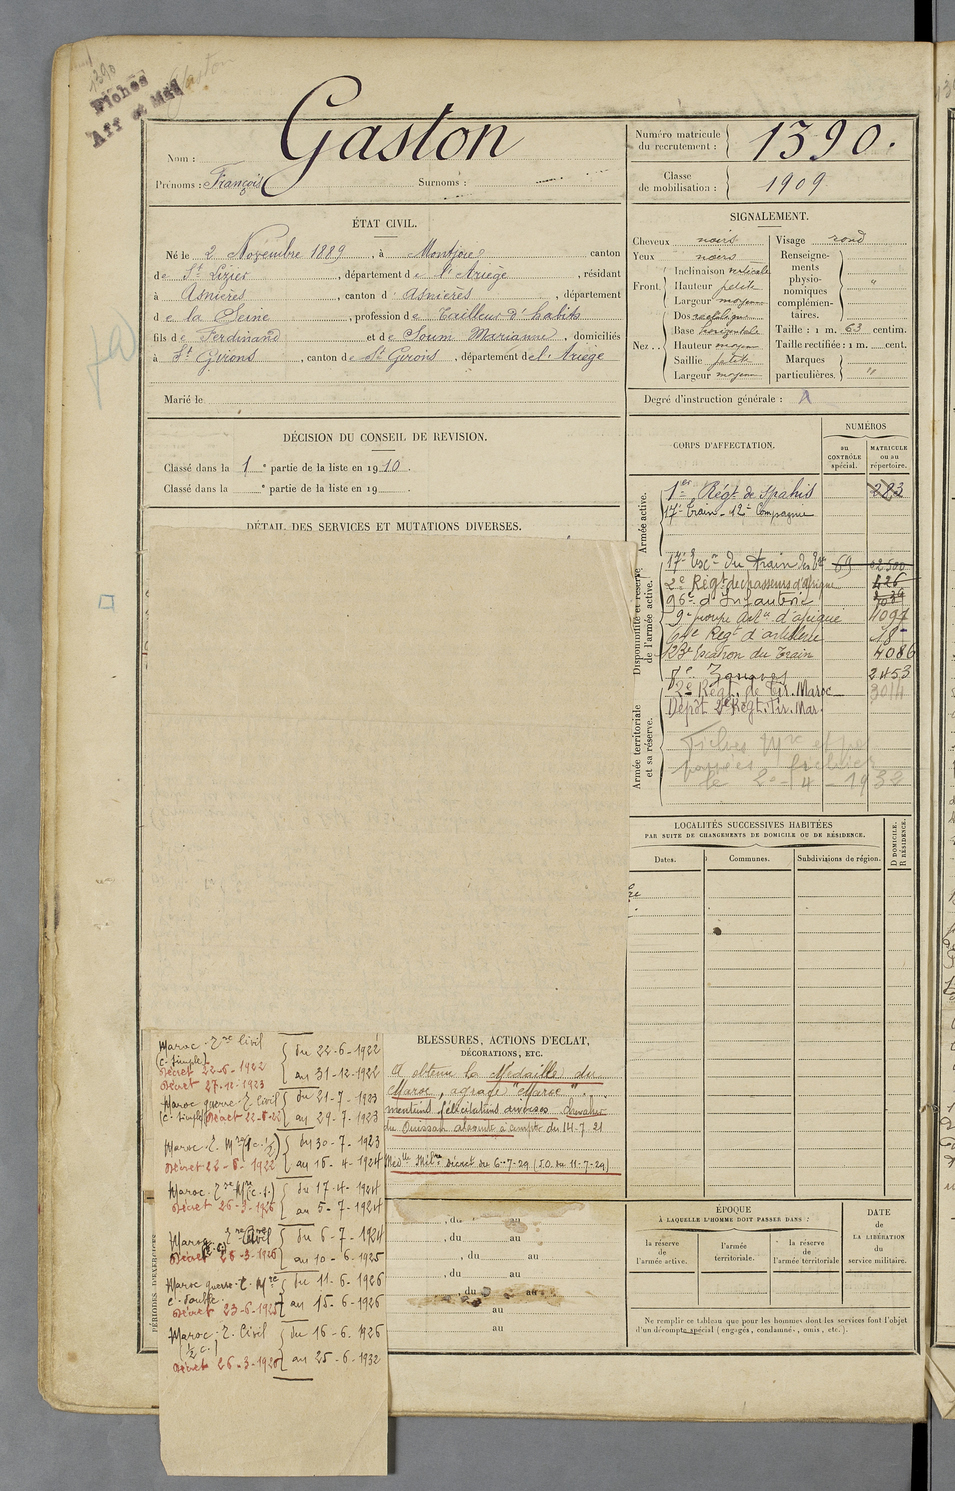 1390
Gaston
Fiches
Aff et Méd
Gaston
Nom :
Prénoms : François
Surnoms :
Numéro matricule
du recrutement :
1390.
Classe
de mobilisation :
1909
ÉTAT CIVIL.
Né le 2 Novembre 1889, à Montjoie canton
de St Lizier, département de l'Ariège, résidant
à Asnières, canton d Asnières, département
de la Seine, profession de Tailleur d'habits
fils de Ferdinand et de Soum Marianne, domiciliés
à St Girons, canton de St Girons, département de l'Ariège
Marié le
SIGNALEMENT.
Cheveux noirs
Yeux noirs
Front
Inclinaison verticale
Hauteur petite
Largeur moyenne
Nez
Dos rectiligne
Base horizontale
Hauteur moyen
Saillie petite
Largeur moyen
Visage rond
Renseigne-
ments
physio-
nomiques
complémen-
taires. "
Taille : 1 m. 63 centim.
Taille rectifiée : 1 m. cent.
Marques
particulières. "
Degré d'instruction générale :
DÉCISION DU CONSEIL DE REVISION.
Classé dans la 1 e partie de la liste en 1910.
Classé dans la e partie de la liste en 19 .
DÉTAIL DES SERVICES ET MUTATIONS DIVERSES.
CORPS D'AFFECTATION.
NUMÉROS
au
CONTRÔLE
spécial.
MATRICULE
ou au
répertoire.
Armée active.
1er Régt de Spahis 283
17e Train - 12e Compagnie
Disponibilité et réserve
de l'armée active.
17e Escn du train des Eq. 69 02500
2e Régt de chasseurs d'afrique 426
96e d'Infanterie
9e groupe Artie d'afrique 4097
64e Régt d'artillerie 18
123e Escadron du Train 4086
Armée territoriale
et sa réserve.
8e Zouaves 2453
2e Régt. de Tir. Maroc 3014
Dépôt 2e Régt. Tir. Mar.
Fiches
le 20-4-1932
LOCALITÉS SUCCESSIVES HABITÉES
PAR SUITE DE CHANGEMENTS DE DOMICILE OU DE RÉSIDENCE.
Dates.
Communes.
Subdivisions de région.
D DOMICILE.
R RÉSIDENCE.
Maroc - Zne Civil
(c. simple)
Décret 22-6-1922
Décret 27-12-1923
du 22-6-1922
au 31-12-1922
Maroc guerre Z. Civil
(c. simple) Décret 22-8-22
du 21-7-1923
au 29-7-1923
Décret 22-8-1922
du 30-7-1923
au 16-4-1924
Décret 26-3-1926
du 17-4-1924
au 5-7-1924
Maroc Zne Civil
Décret 26-3-1926
du 6-7-1924
au 10-6-1925
Maroc guerre Z. Mre
c. double
Décret 23-6-1925
du 11-6-1926
au 15-6-1926
Maroc - Z. Civil
(1/2 c.)
Décret 26-3-1926
du 16-6-1926
au 25-6-1932
BLESSURES, ACTIONS D'ÉCLAT,
DÉCORATIONS, ETC.
A obtenu la Médaille du
Maroc, agrafe "Maroc".
félicitations diverses Chevalier
du Ouissam alaouite à compter du 14-7-21
Médlle Milre Décret du 6-7-29 (J.O. du 11-7-29)
PÉRIODES D'EXERCICES
, du au
, du au
, du au
, du au
, du au
au
au
ÉPOQUE
À LAQUELLE L'HOMME DOIT PASSER DANS :
la réserve
de
l'armée active.
l'armée
territoriale.
la réserve
de
l'armée territoriale
DATE
de
LA LIBÉRATION
du
service militaire.
Ne remplir ce tableau que pour les hommes dont les services font l'objet
d'un décompte spécial (engagés, condamnés, omis, etc.).